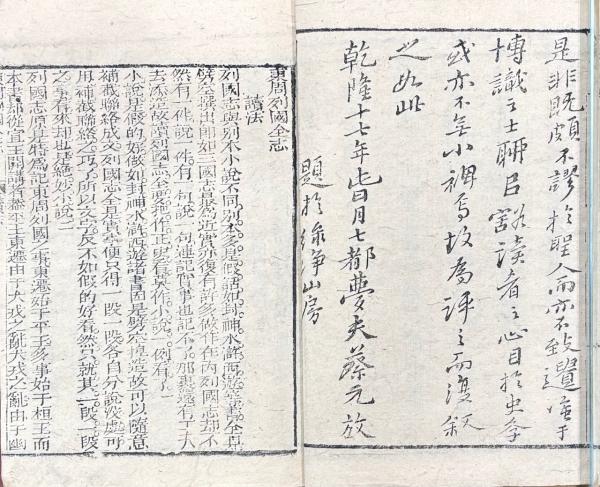 是非既頗不謬於聖人而亦不致遺嗤于
博識之士聊以豁讀者之心目於史學
或亦不無小裨焉故為評之而復叙
之如此
乾隆十七年 月七都夢夫蔡元放
題於 淨山房
東周列國全志
讀法
列國志與別本小說不同別本多是假話如封神水滸西遊等書全是
劈空撰出即如三國志最為近實亦復有許多做作在內列國志却不
然有一件說一件有一句說一句連記實事也記不了那裏還有工夫
去添造故讀列國志全要把作正史看莫作小說一例看了
小說是假的好做如封神水滸西遊諸書因是劈空揑造故可以隨意
補截聯絡成文列國志全是實事便只得一段一段各自分說沒處可
用補截聯絡之巧了所以文字反不如假的好看然只就其一段一段
之事看來却也是絕妙小說
列國志原是特為記東周列國之事東遷始于平王多事始于桓王而
本書却從宣王開講者蓋平王東遷由于犬戎之亂犬戎之亂由于幽